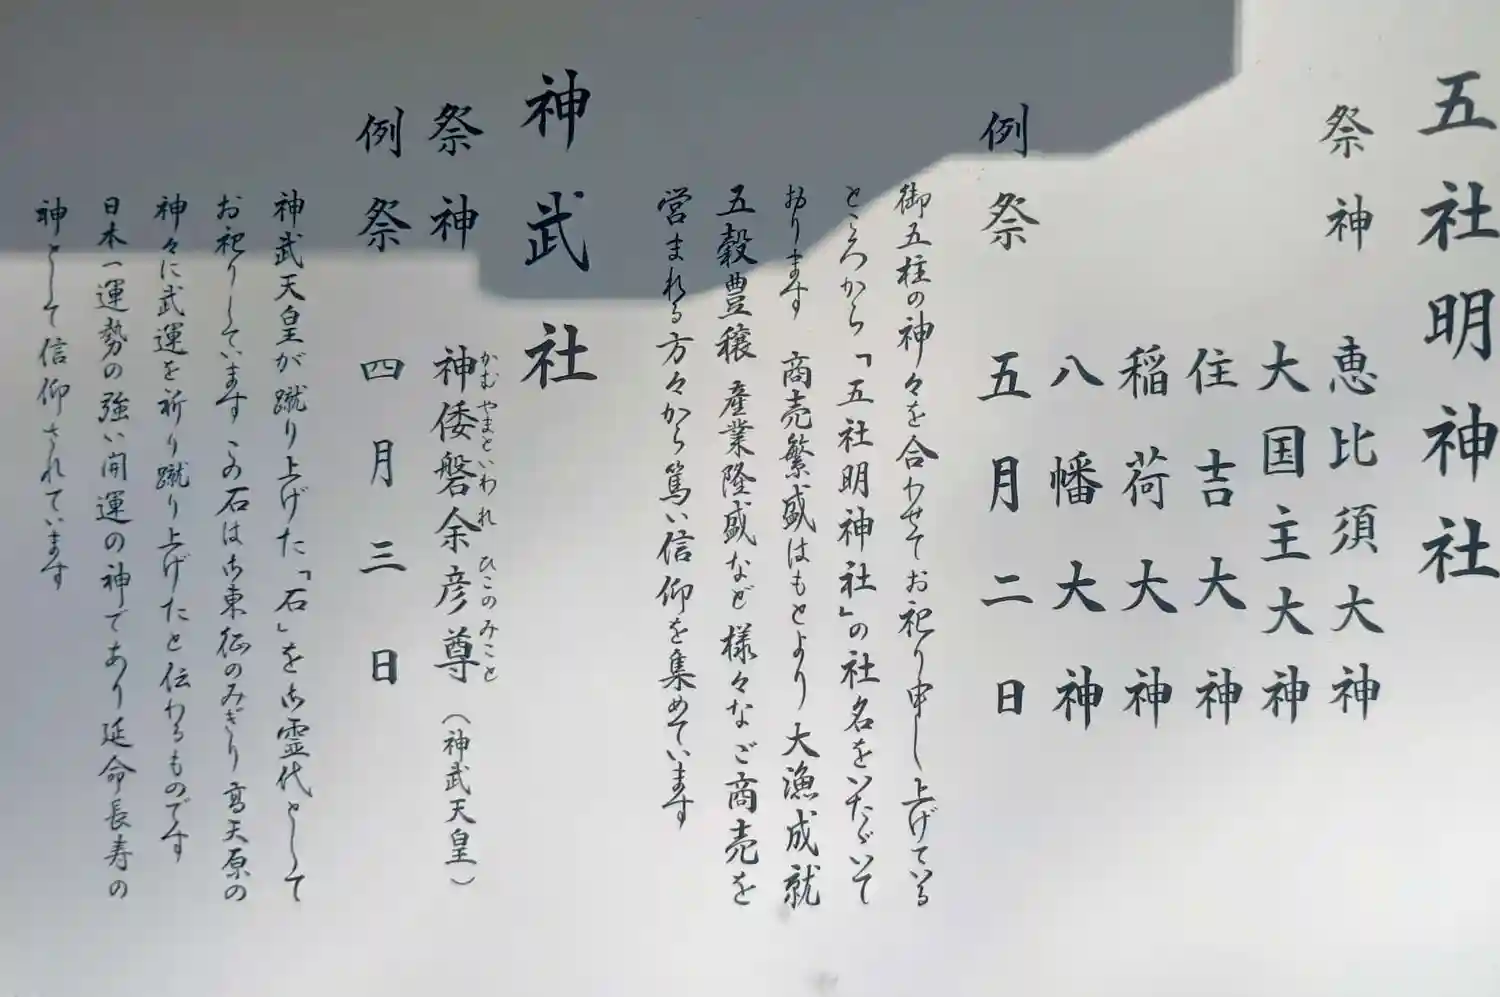 五社明神社
祭神 恵比須大神
大国主大神
住吉大神
稲荷大神
八幡大神
例祭 五月二日
御五柱の神々を合わせてお祀り申し上げている
ところから「五社明神社」の社名をいただいて
おります 商売繁盛はもとより大漁成就
五穀豊穣 産業隆盛など様々なご商売を
営まれる方々から篤い信仰を集めています
神武社
祭神 神倭磐余彦尊（神武天皇）
かむやまといわれ ひこのみこと
例祭 四月三日
神武天皇が蹴り上げた「石」を御霊代として
お祀りしています この石は御東征のみぎり高天原の
神々に武運を祈り蹴り上げたと伝わるものです
日本一運勢の強い開運の神であり延命長寿の
神として信仰されています